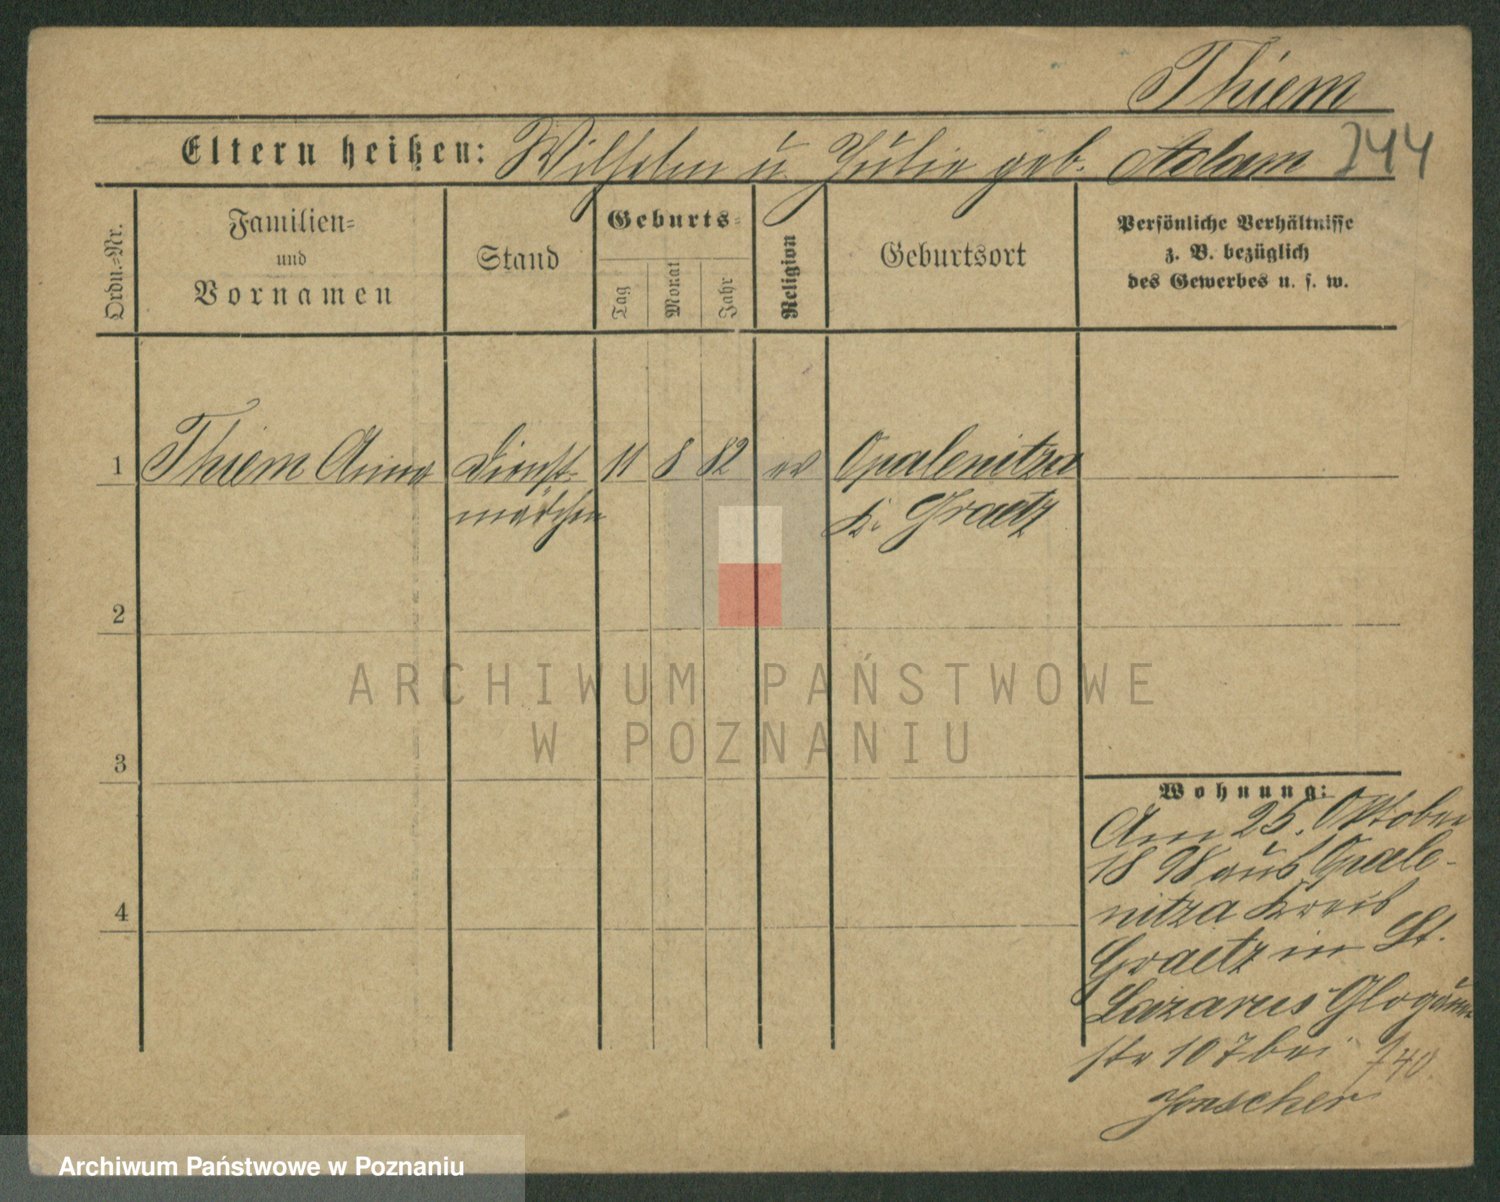 Thiem
Eltern heißen: Wilhelm u. Julie geb. Adam 744
Ordn.-Nr.
Familien-
und
Vornamen
Stand
Geburts-
Tag
Monat
Jahr
Religion
Geburtsort
Persönliche Verhältnisse
z. B. bezüglich
des Gewerbes u. s. w.
1 Thiem Anna Dienst- 11 8 82 ev Opalenitza
mädchen K. Graetz
2
3
4
ARCHIWUM PAŃSTWOWE
W POZNANIU
Wohnung:
Am 25. Oktober
1898 aus Opale-
nitza Kreis
Graetz in St.
Lazarus Glogauer-
str 107 bei 740
Archiwum Państwowe w Poznaniu